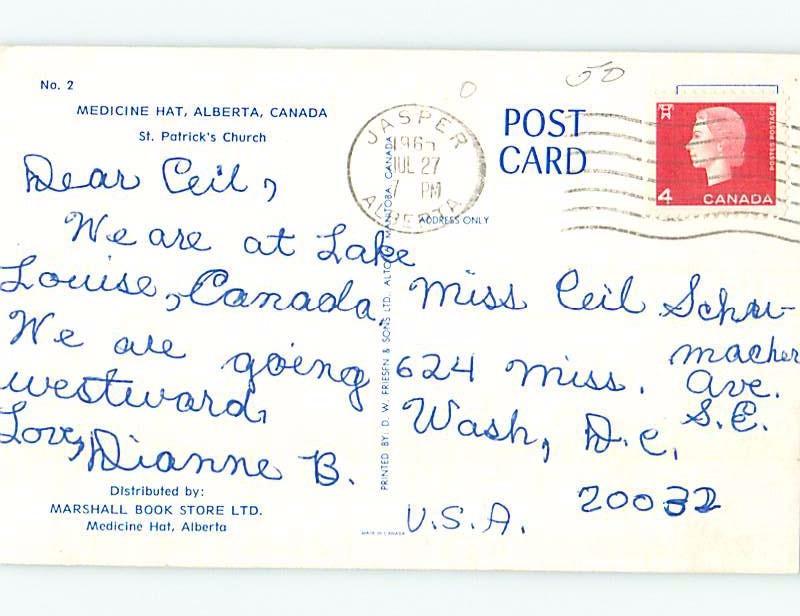 50
No. 2
MEDICINE HAT, ALBERTA, CANADA
St. Patrick's Church
Dear Ceil,
We are at Lake
Louise, Canada.
We are going
westward.
Love,
Dianne B.
Distributed by:
MARSHALL BOOK STORE LTD.
Medicine Hat, Alberta
PRINTED BY: D. W. FRIESEN & SONS LTD. ALTONA, MANITOBA, CANADA
MADE IN CANADA
JASPER
JUL 27
7 PM
ALBERTA
POST
CARD
ADDRESS ONLY
POSTES POSTAGE
4 CANADA
Miss Ceil Schu-
macher
624 Miss. Ave.
S.E.
Wash, D.C.
20032
U.S.A.